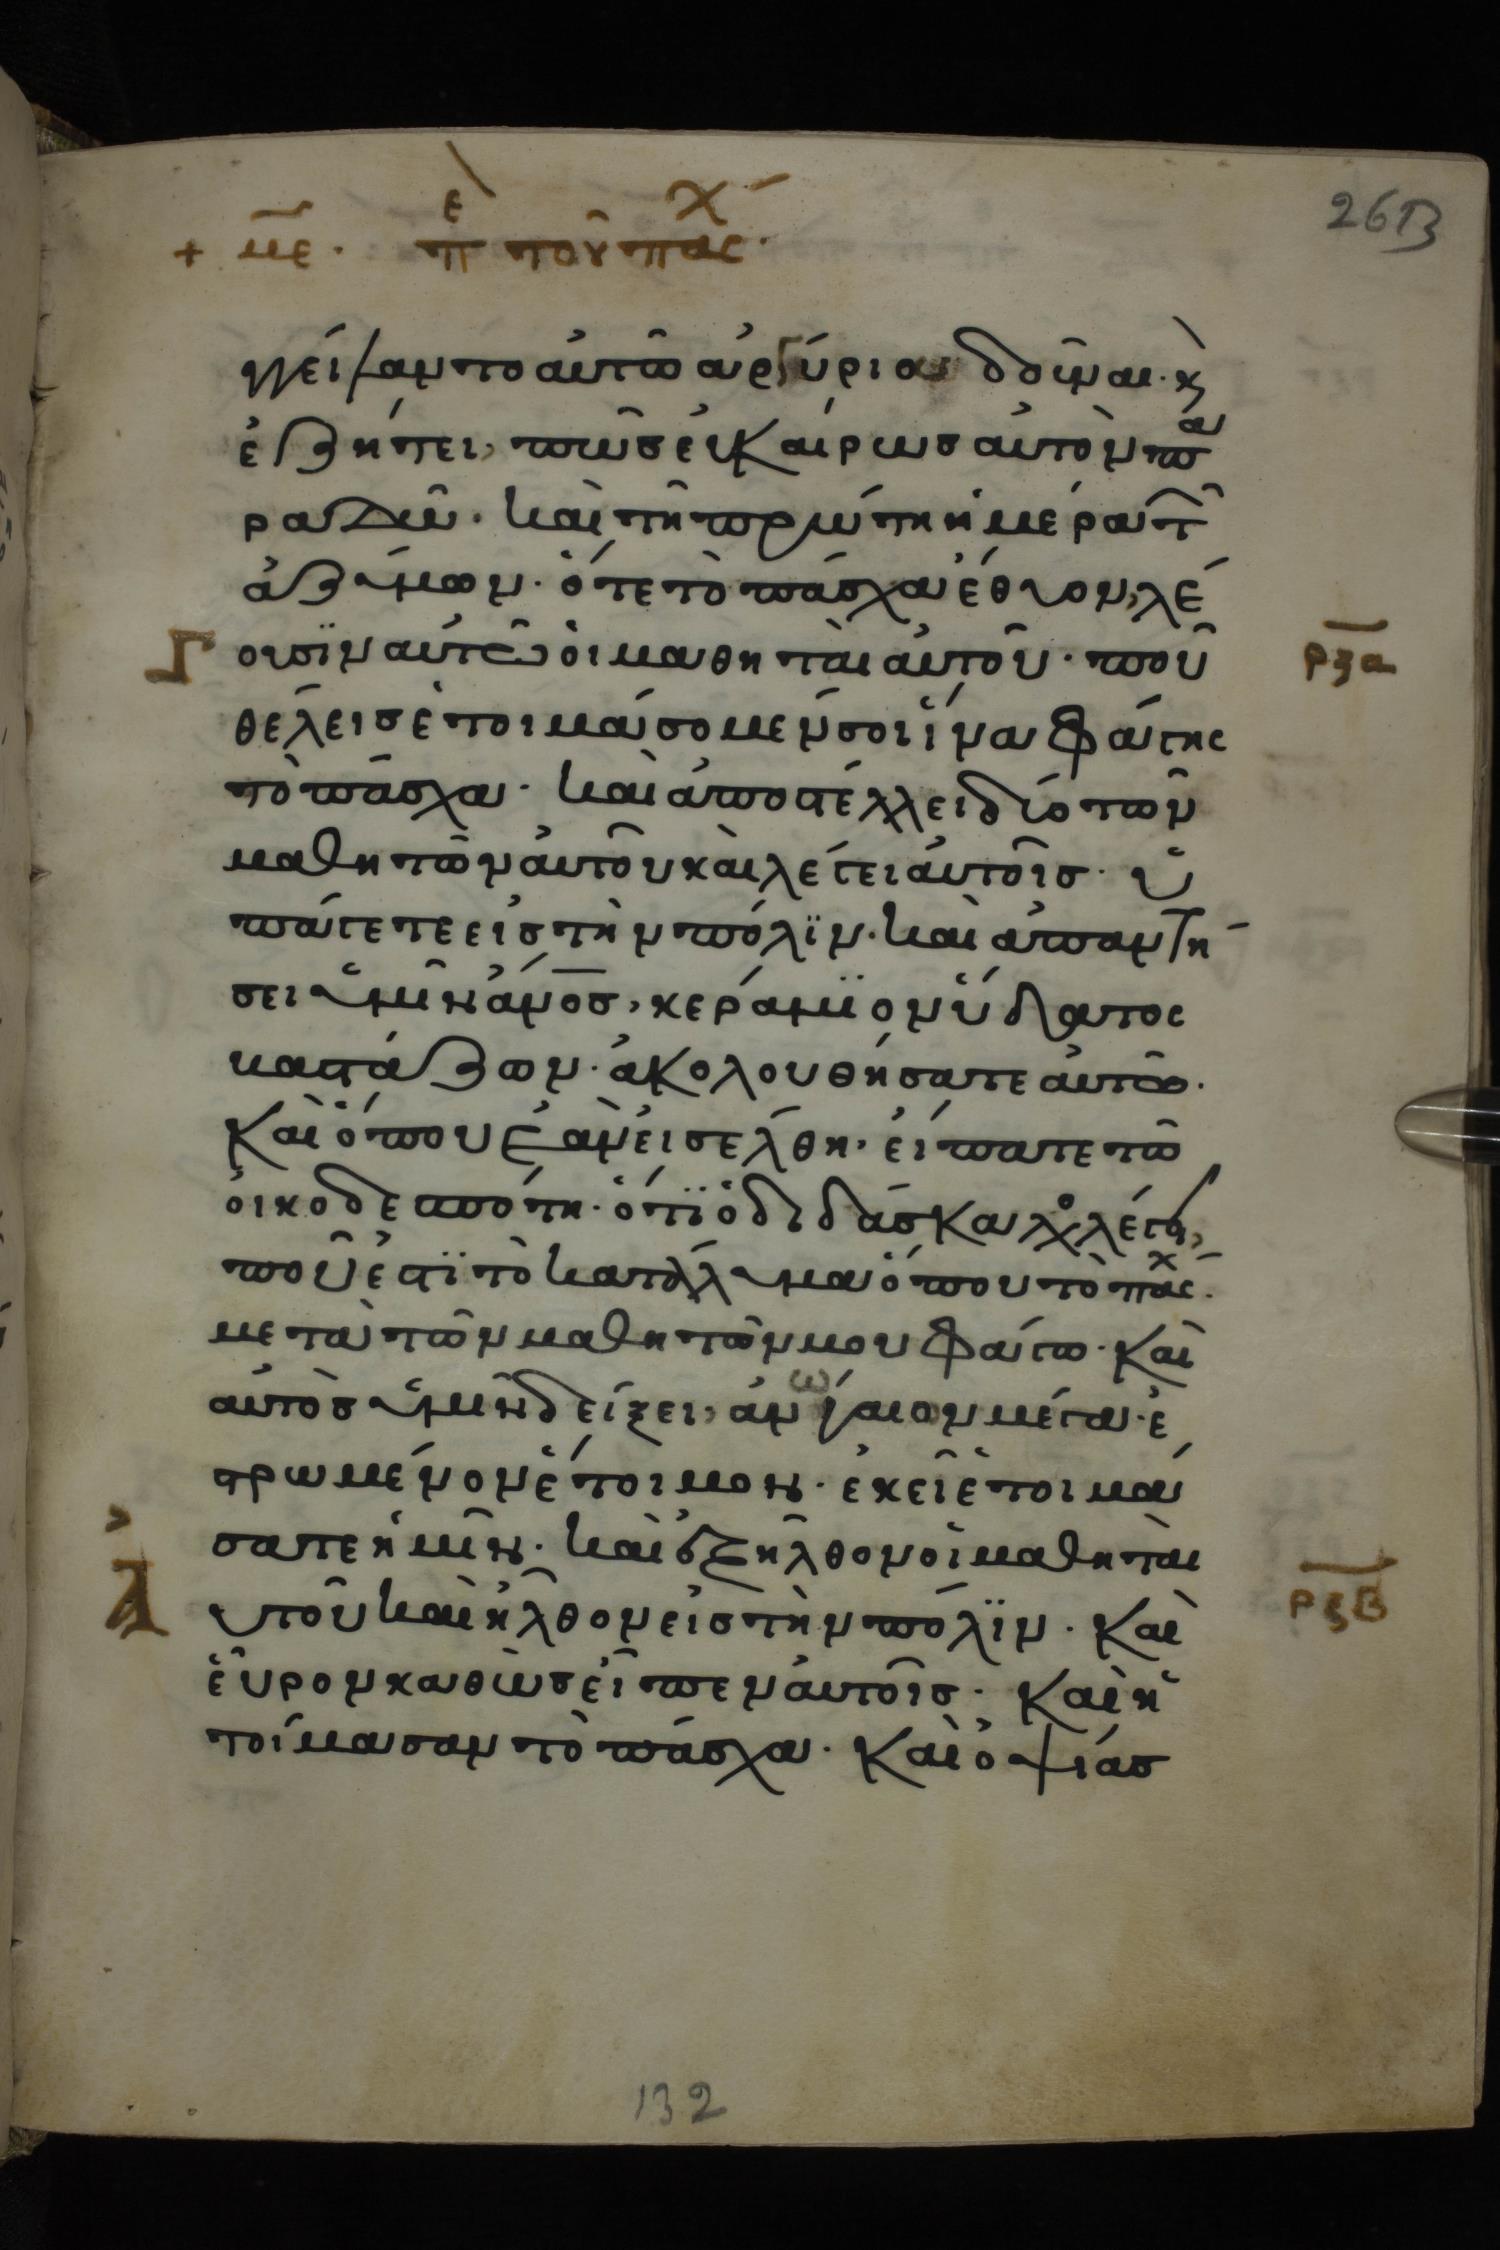 26B
+ με. πε τοῦ πασχ.
γγείλαντο αὐτῶ ἀργύριον δοῦναι. κ
ἐζήτει, πῶς εὐκαίρως αὐτὸν πα
ραδῶ. καὶ τῆ πρώτη ἡμέρα τ
ἀζύμων. ὅτε τὸ πάσχα ἔθυον, λέ
γουσϊν αὐτῶ οἱ μαθηταὶ αὐτοῦ. ποῦ
ρξα
θέλεις ἑτοιμάσομέν σοι ἵνα φάγης
τὸ πάσχα. καὶ ἀποστέλλει δύο τῶν
μαθητῶν αὐτοῦ καὶ λέγει αὐτοῖς. ὑ
πάγετε εἰς τὴν πόλϊν. καὶ ἀπαντή
σει ὑμῖν ἀνος, κεράμϊον ὕδατος
βαστάζων. ἀκολουθήσατε αὐτῶ.
καὶ ὅπου ἐὰν εἰσέλθη. εἴπατε τῶ
οἰκοδεσπότη. ὅτϊ ὁ διδάσκαλο λέγει,
ποῦ ἐστϊ τὸ κατάλυμα ὅπου τὸ πασχ.
μετὰ τῶν μαθητῶν μου φάγω. καὶ
αὐτὸς ὑμῖν δείξει, ἀνώγαιον μέγα. ἐ
στρωμένον ἕτοιμον. ἐκεῖ ἑτοιμά
σατε ἡμῖν. καὶ ἐξῆλθον οἱ μαθηταὶ
αὐτοῦ καὶ ἦλθον εἰς τὴν πόλϊν. καὶ
ρξβ
εὗρον καθὼς εἶπεν αὐτοῖς. καὶ ἡ
τοίμασαν τὸ πάσχα. καὶ ὀψίας
132